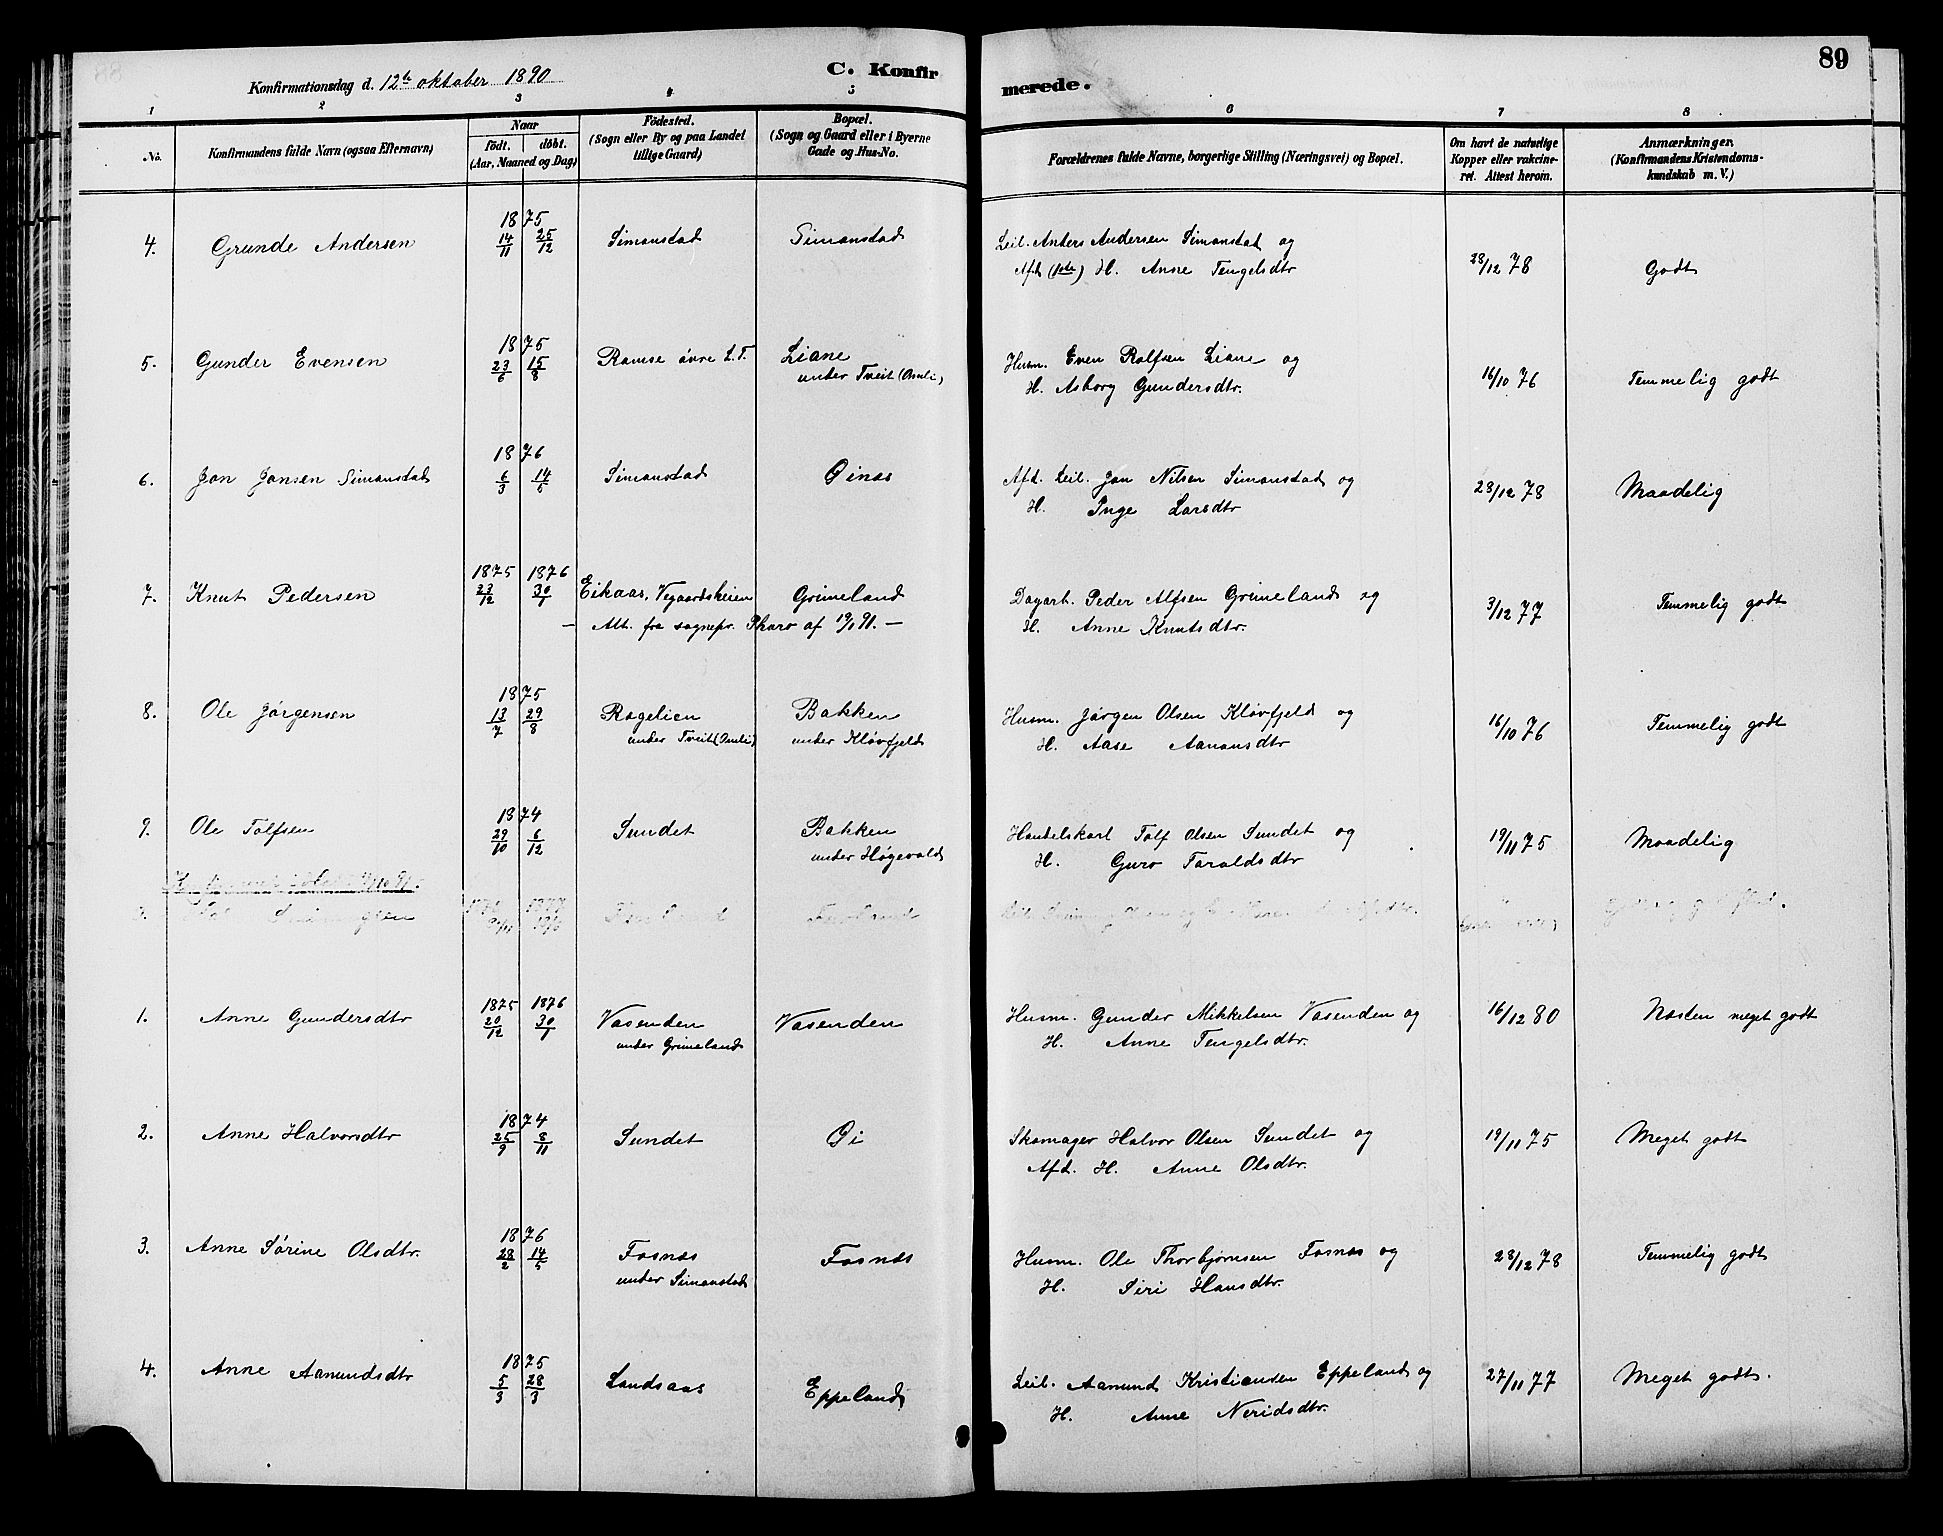 89
Konfirmationsdag d. 12te oktober 1890
C. Konfirmerede.
1 2 3 4 5 6 7 8
No.
Konfirmandens fulde Navn (ogsaa Efternavn)
Naar
födt. döbt.
(Aar, Maaned og Dag)
Födested.
(Sogn eller By og paa Landet
tillige Gaard)
Bopæl.
(Sogn og Gaard eller i Byerne
Gade og Hus-No.
Forældrenes fulde Navne, borgerlige Stilling (Næringsvei) og Bopæl.
Om havt de naturlige
Kopper eller vakcine-
ret. Attest herom.
Anmærkninger.
(Konfirmandens Kristendoms-
kundskab m. V.)
4. Grunde Andersen 1875 14/11 25/12 Simonstad Simonstad Leil. Anders Andersen Simonstad og 28/12 78 Godt
H. Anne Tengelsdtr
5. Gunder Evensen 1875 23/6 15/8 Ramse övre L.T. Liane Husm. Even Rolfsen Liane og 16/10 76 Temmelig godt
under Tveit (Omli) H. Asborg Gundersdtr.
6. Jon Jonsen Simonstad 1876 6/3 14/5 Simonstad Øinæs Afd. Leil. Jon Nilsen Simonstad og 28/12 78 Maadelig
H. Inge Larsdtr
7. Knut Pedersen 1875 23/12 1876 30/1 Eikaas, Vegaardsheien Grimeland Dagarb. Peder Alfsen Grimeland og 3/12 77 Temmelig godt
— Att. fra sognepr. Pharo af 19/1 91. — H. Anne Knutsdtr.
8. Ole Jörgensen 1875 13/7 29/8 Rogelien Bakken Husm. Jörgen Olsen Klövfjeld og 16/10 76 Temmelig godt
under Tveit (Omli) under Klövfjeld H. Aase Aanonsdtr
9. Ole Tolfsen 1874 29/10 6/12 Sundet Bakken Handelskarl Tolf Olsen Sundet og 19/11 75 Maadelig
under Høgevold H. Guro Taraldsdtr
1. Anne Gundersdtr 1875 20/12 1876 30/1 Vasenden Vasenden Husm. Gunder Mikkelsen Vasenden og 16/12 80 Næsten meget godt
under Grimeland H. Anne Tengelsdtr.
2. Anne Halvorsdtr 1874 25/9 8/11 Sundet Øi Skomager Halvor Olsen Sundet og 19/11 75 Meget godt
Afd. H. Anne Olsdtr.
3. Anne Sörine Olsdtr. 1876 28/2 14/5 Fosnæs Fosnæs Husm. Ole Thorbjørnsen Fosnæs og 28/12 78 Temmelig godt
under Simonstad H. Siri Hansdtr.
4. Anne Aamundsdtr 1875 5/3 28/3 Landsaas Eppeland Leil. Aamund Kristiansen Eppeland og 27/11 77 Meget godt.
H. Anne Neridsdtr.